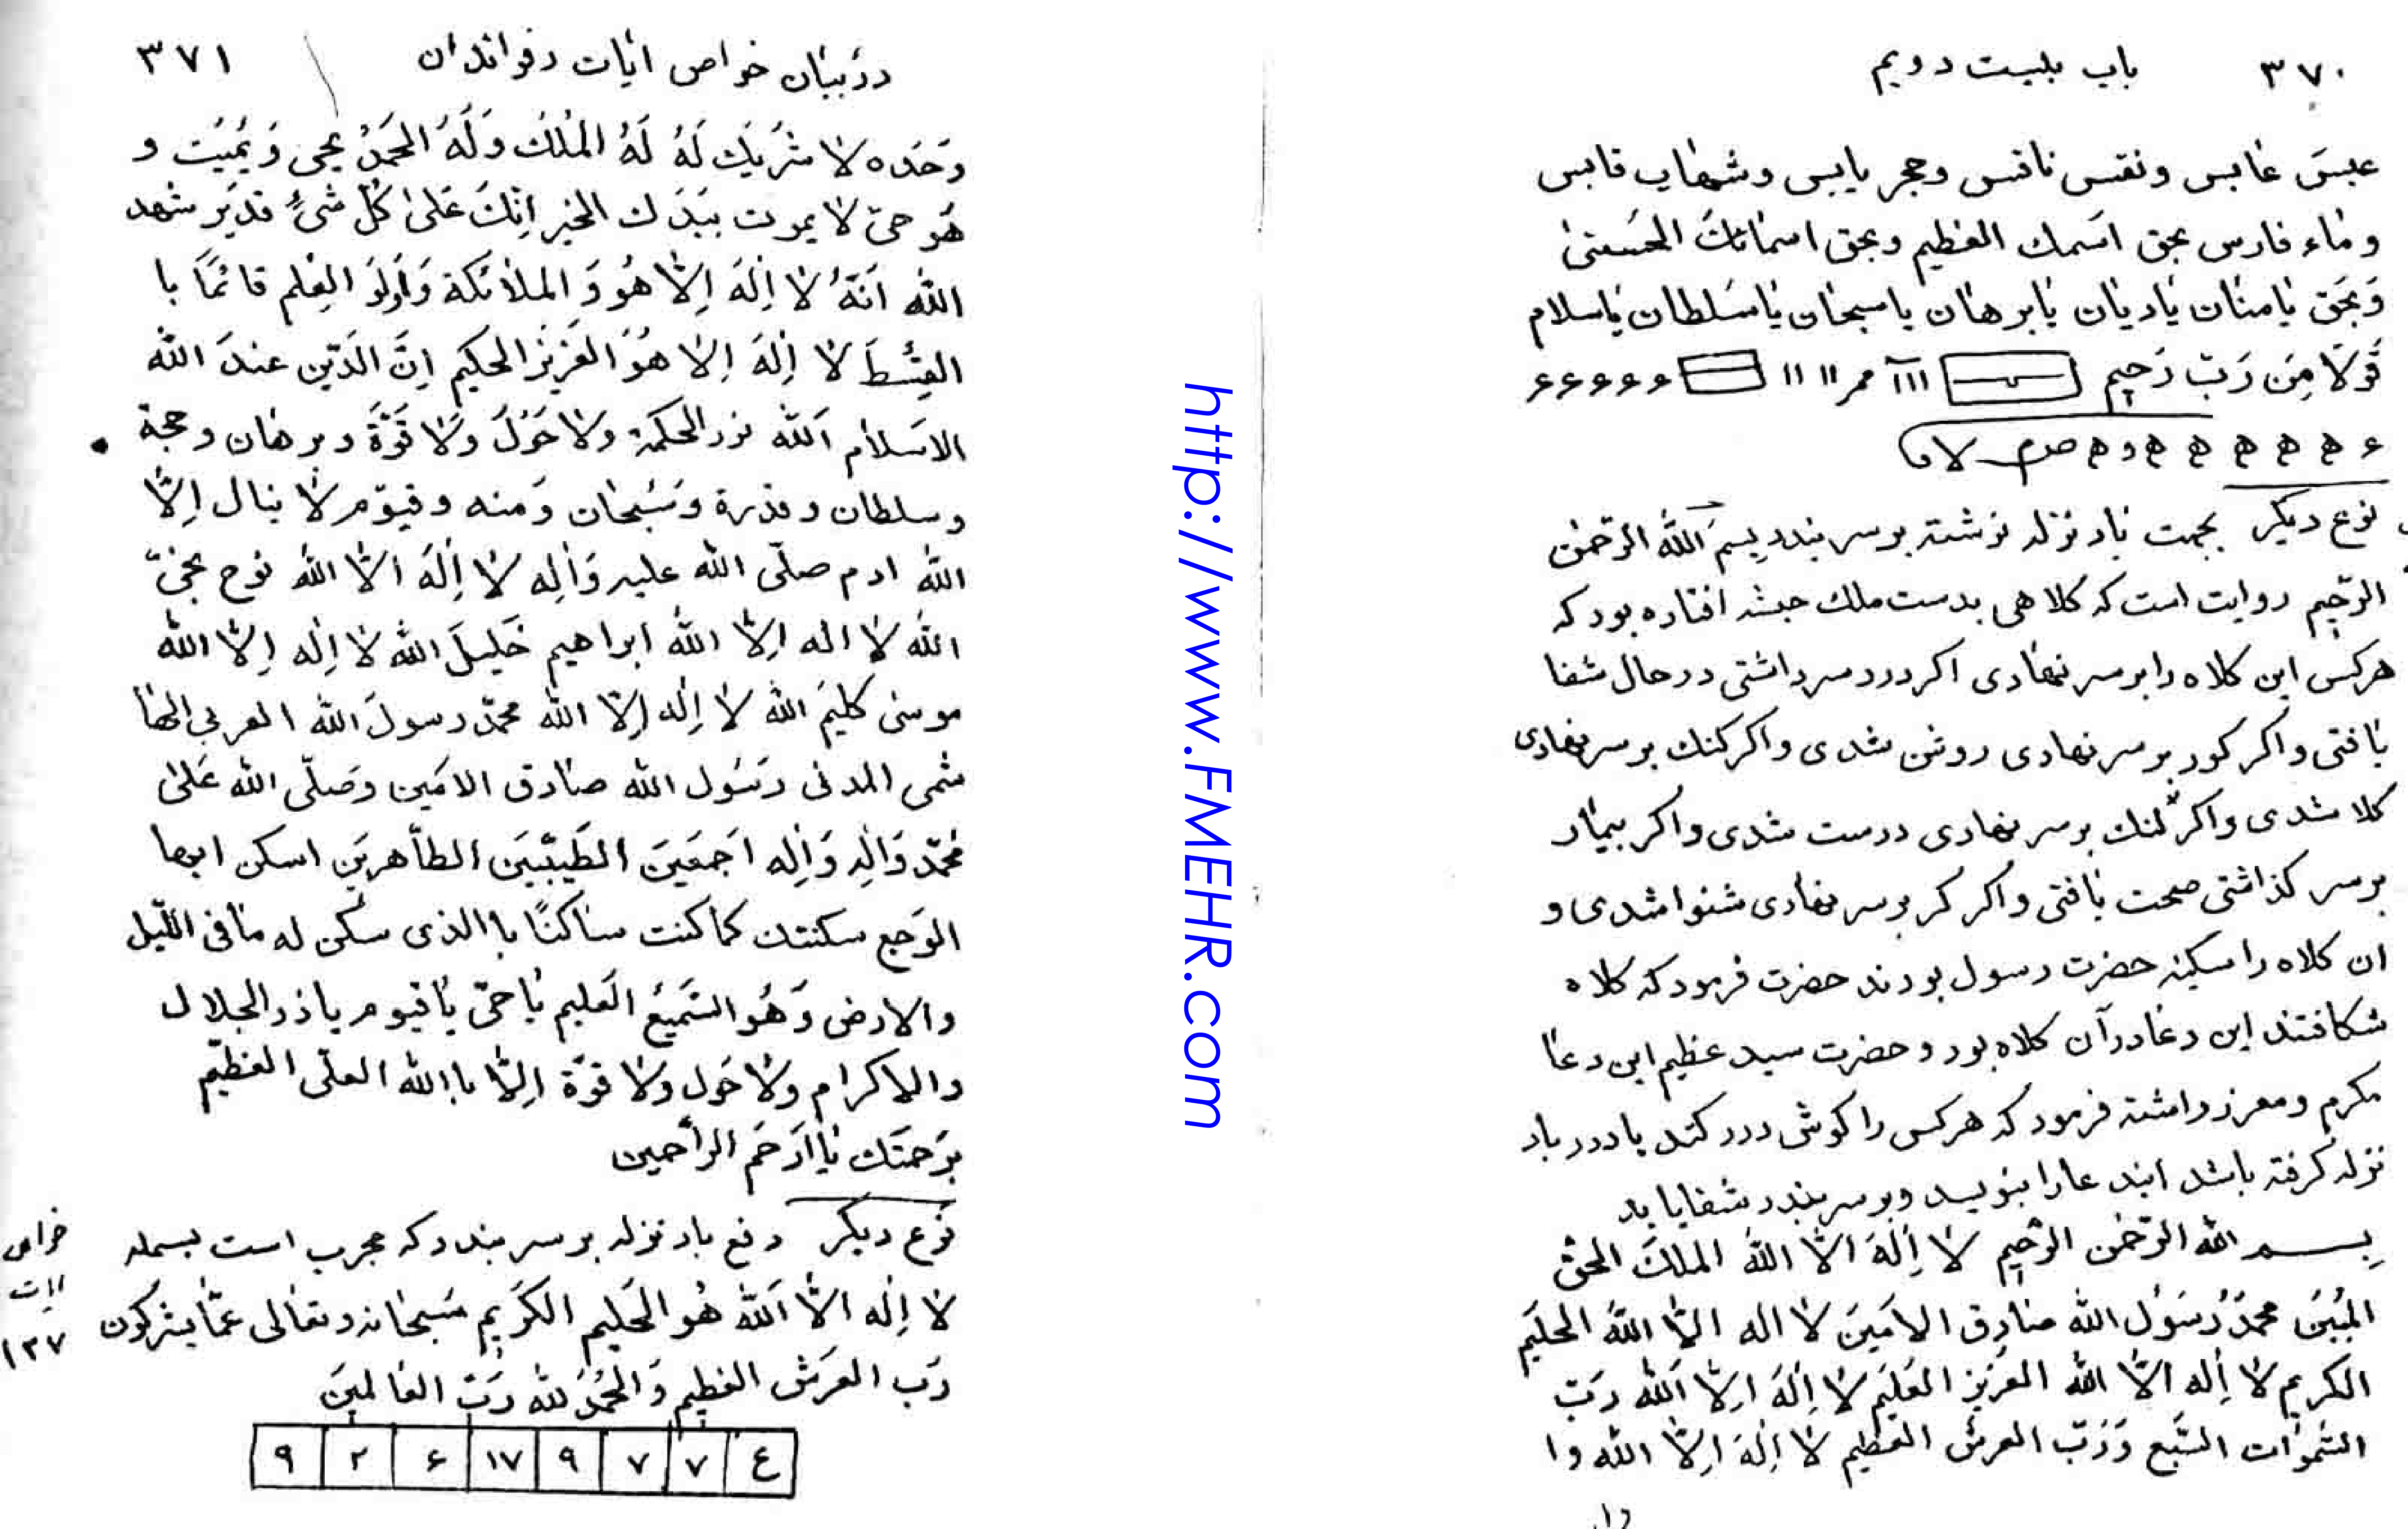 ۳۷۰ باب بلیست دویم
عبسَ عابس ونفس نافس وحجر یابس وشهاب قابس
وماء فارس بحق اسمك العظیم وبحق اسمائك الحسنیٰ
وَبحَق یامنان یادیان یابرهان یاسبحان یاسلطان یاسلام
قَولاً مِن رَبّ رَحیم ۱۱۱ م ۱۱ ۱۱ ع ع ع ع ع
ع ه ه ه ه ه و ه لا
نوع دیکر بجهت باد نزله نوشته برسر بندد بسم الله الرّحمٰن
الرّحیم روایت است که کلاهی بدست ملك حبشه افتاده بود که
هرکس این کلاه را برسر نهادی اکر درد سر داشتی در حال شفا
یافتی و اکر کور برسر نهادی روشن شدی و اکر کنك برسر نهادی
کلا شدی و اکر لنك برسر نهادی درست شدی و اکر بیمار
برسر کذاشتی صحت یافتی و اکر کر برسر نهادی شنوا شدی و
ان کلاه را حضرت رسول بودند حضرت فرمود که کلاه
شکافتند این دعا در آن کلاه بود و حضرت سید عظیم این دعا
مکرم و معزز داشته فرمود که هرکس را کوش درد کند یا درد باد
نزله کرفته باشد ایند عا را بنویسد و برسر بندد شفا یابد
بسم الله الرّحمٰن الرّحیم لا اِلٰهَ الّا اللهُ الملكَ الحقّ
المُبین محمّد رَسُول الله صادِق الامَین لا اله الّا اللهُ الحلیَم
الکریم لا اِله الّا الله العَزیز العَلیَم لا اِلهَ اِلّا اَلله رَبّ
السّموٰات السَّبع وَرَبّ العرش العظیم لا اِلٰهَ اِلّا الله وا
وا
دربیان خواص ایات رفواندان ۳۷۱
وَحدَه لا شَریك لَهُ لَهُ المُلك وَلَهُ الحَمدُ یحی وَیُمیَت و
هَو حیّ لا یموت بیَدك الخیر اِنّكَ عَلیٰ کلّ شیءٍ قدیَر شهد
الله اَنَّهُ لا اِلٰهَ اِلّا هُو وَ المَلائکة وَاُولوُ العِلم قائمًا با
القِسطَ لا اِلهَ اِلا هُوَ العَزیز الحکیم اِنَّ الَدّین عندَ الله
الاسَلام اَلله نور الحکمة ولا حَوَل وَلا قوّة وبرهان وحجة
وسلطان وقدرة وسُبحان وَمنه وقیوّم لا ینال اِلّا
الله ادم صلّی الله علیه وَاٰلِه لا اِلَهَ الّا الله نوح نجیّ
الله لا اله الّا الله ابراهیم خَلیلَ الله لا اِله اِلّا الله
موسیٰ کلیمَ الله لا اِلٰه اِلّا الله محمّد رسولَ الله العربی الها
شمی المدنی رَسُول الله صادق الامَین وَصَلّی الله عَلیٰ
مُحمّد وَالِه وَاٰلِه اَجمعَینَ الطَیبّینَ الطّاهرین اسکن ایها
الوَجع سکنتك کما کنت ساکنًا با الذی سَکن له مافی اللّیل
والارض وَهُو السَّمیعُ العَلیم یا حیّ یا قیوم یا ذو الجلال
والاکرام ولا حَول ولا قوّة اِلّا با الله العلّی العظیم
بِرَحمتَك یا اَرَحَم الراحمین
نوَع دیکر دفع باد نزله برسر بندد که مجرب است بسمله
لا اِله الّا اَلله هُو الحَلیم الکَریم سُبحانه و تعٰالی عمّا یشرکون
رَب العرَش العظیم وَ الحمُدُ لله رَبّ العالمَین
ع ۷ ۷ ۹ ۱۷ ۶ ۲ ۹
خواص
ایات
۱۳۷
http://www.FMEHR.com